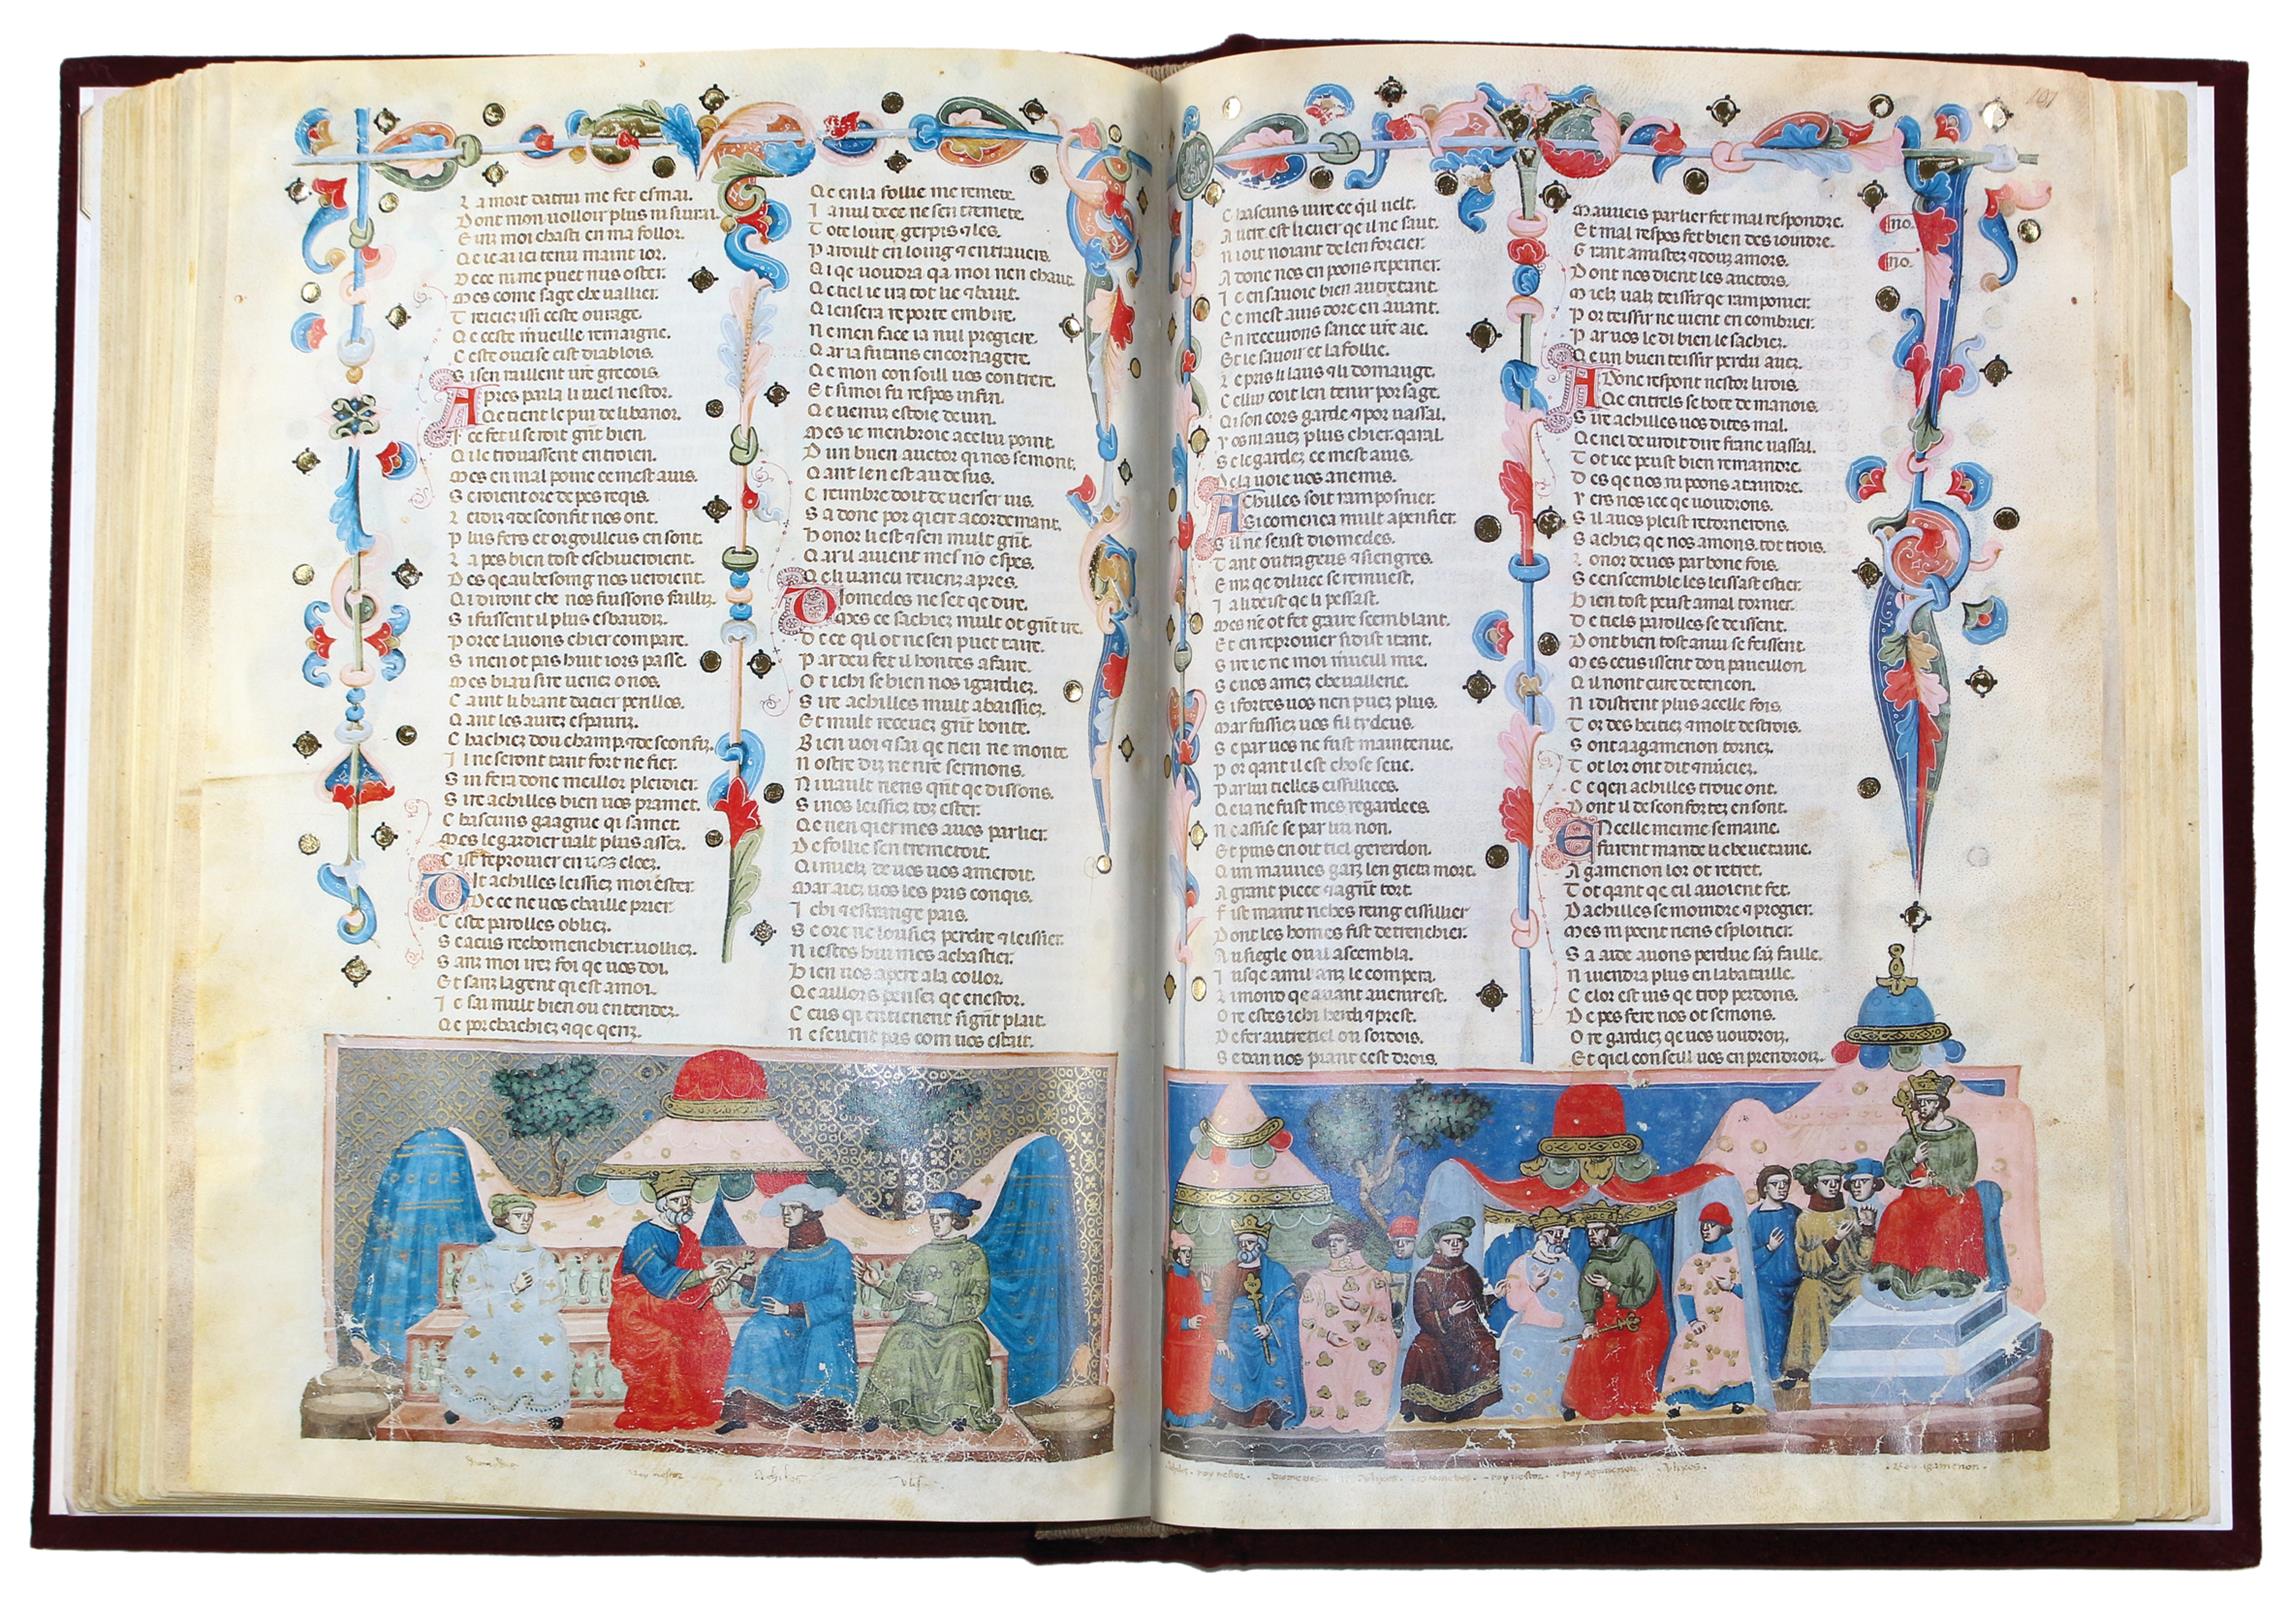 La mort dautrui me fet esmai.
Dont mon uolloir plus ni suiurai.
E uir moi chasti en ma follor.
Qe ie ai ici tenu maint ior.
De ce ni me puet nus oster.
Mes come sage cheuallier.
Treiciez issi ceste ourage.
Qe ceste merueille remaigne.
C este oueise est diablois.
S i sen raillent ure grecois.
A pres parla li uiel nestor.
Qe tient le pui de libanor.
I ce fet il seroit grant bien.
Q ile trouassent en troien.
Mes en mal point ce mest auis.
S eroient ore de pes reqis.
L eidiz 7 desconfit nos ont.
P lus fers et orgoulleus en sont.
L a pes bien tost eschiueroient.
D es qe au besoing nos ueroient.
Q i diront che nos fuissons failliz.
S i fussent il plus esbaudiz.
P or ce lauons chier compare.
S i nen ot pas huit iors passe.
Mes biau sire uenez o nos.
C aint li brant dacier perillos.
Q ant les aurez espauriz.
C hachiez dou champ 7 desconfiz.
I l ne seront tant fort ne fier.
S in fera donc meillor pleidier.
S ire achilles bien uos pramet.
C hascuns gaagne qi samet.
Mes le gardier ualt plus assez.
C ist reprouier en uos cloez.
D it achilles leissiez moi ester
De ce ne uos chaille prier
C este parolles obliez.
S e a cus rechomenchier uolliez.
S anz moi irez foi qe uos doi.
Et sanz lagent qi est a moi.
I e sai mult bien ou entendez.
Qe porchachiez 7 qe qerez.
Qe en la follie me remete.
I a nul de ce ne sen tremete.
T ote louire gerpis 7 les.
P aroult en loing 7 en trauers.
Q i qe uoudra qa moi nen chaut.
Q e tiel ie ura tot lie 7 baut.
Q i en sera reporte en bire.
N e men face ia nul progiere.
Q ar ia fu tans encor nagere.
Qe mon consoill uos contrere.
Et si moi fu respos infin.
Qe uenuz estoie deuin.
Mes ie menbroie a celui point.
D un buen auctor qi nos semont.
Q ant len est au desus.
C rembre doit de uerser ius.
S a donc por qiert acordemant.
Honor li est 7 sen mult grant.
Q ar il auient mes no espes.
Qe li uancu reuenz apres.
D iomedes ne set qe dire.
Mes ce sachiez mult ot grant ire.
De ce qil ot ne sen puet taire.
P ar deu fet il hontes a faire.
O t ichi se bien nos i gardiez.
S ire achilles mult abaissiez.
Et mult receuez grant honte.
Bien uoi 7 sai qe rien ne monte
Nostre diz ne nre sermons.
Ni uault riens qnt qe dissons.
S i nos leissiez toz ester.
Qe nen qier mes a uos parler.
De follie sen tremetroit.
Q i mielz de uos uos ameroit.
Mar aiez uos les pris conqis.
I chi 7 estrange pais.
S e ore ne louisiez perdre 7 leissier.
N i estes hui mes a chastier.
Bien uos apert a la collor.
Qe aillors pensez qe enestor.
C eus qi en tienent si grant plait.
N e seuent pas com uos estait.
101
C hascuns uire ce qil uelt.
A uitre est li cuer qe il ne saut.
N i oit noiant de len forcier.
A donc nos en poons repeirier.
I e en sauoie bien autretant.
C e mest auis dore en auant.
En receuions sance ure aie.
Et le sauoir et la follie.
L e pris li laus 7 li domauge.
C ellui doit len tenir por sage.
Q i son cors garde 7 por uassal.
Ne os mi auez plus chier. qaral.
S e le gardez ce mest auis.
De la uoie uos anemis.
A Chilles soit ramposnier.
Si comenca mult apensier.
S il ne seust diomedes.
T ant outrageus 7 si engres.
E nz qe di luec se remuest.
I a li deist qe li pessast.
Mes ne ot fet gaire semblant.
Et en reprouier si dist itant.
S ire ie ne moi merueill mie.
S e uos amez cheuallerie.
S i fortes uos nen puez plus.
Mar fussiez uos fil tydeus.
S e par uos ne fust maintenue.
P or qant il est chose seue.
P ar lui tielles eissillees.
Qe ia ne fust mes regardees.
N e assise se par lui non.
Et puis en oit tiel gererdon.
Q un mauues garz len gieta mort.
A grant piece 7 agrant tort.
F ist maint riches reing eissillier
Dont les homes fist detrenchier.
A u siegle ou il asembla.
I usqe a mil anz le compera.
L i mond qe a uant auenir est.
O re estes ichi herdi 7 prest.
De fer autretiel ou sordois.
S e dan uos priant cest drois.
Mauueis parlier fet mal respondre.
Et mal respos fet bien des ioindre.
G rant amistez 7 douz amors.
Dont nos dient les auctors.
Mielz ualz teissir qe ramponier.
P or teissir ne uient encombrier.
P ar uos le di bien le sachiez.
Qe un buen teissir perdu auez.
A Donc respont nestor li rois.
Qe entrels se bote de manois.
S ire achilles uos dites mal.
Qe nel deuroit dire franc uassal.
T ot ice peust bien remaindre.
D es qe nos ni poons ataindre.
V ers nos ice qe uoudrons.
S il auos pleist retornerons.
S achiez qe nos amons tot trois.
L onor de uos par bone fois.
S e ensemble les leissast estier.
B ien tost peust a mal tornier.
De tiels parolles se deissent.
Dont bien tost anui se feissent.
Mes ceus issent dou paueillon
Q il nont cure de tencon.
N i distrent plus a celle fois.
T or des heitiez 7 molt destrois.
S ont a agamenon tornez.
T ot lor ont dit 7 nunciez.
C e qen achilles troue ont.
Dont il desconfortez en sont.
E N celle meime semaine.
furent mande li cheuetaine.
A gamenon lor ot retret.
T ot qant qe cil auoient fet.
D achilles semoindre 7 progier.
Mes ni poent riens esploitier.
S a aide auons perdue san faille.
N i uendra plus en la bataille.
C elor est uis qe trop perdons.
De pes fere nos ot semons.
O re gardiez qe uos uoudroiz.
Et qiel conseill uos en prendroiz.
no.
no.
Roy nestor
Achiles
Ulis
roy nestor. diomedes. Ulixes. diomedes. roy nestor. roy agamenon. Ulixes. Roy agamenon.